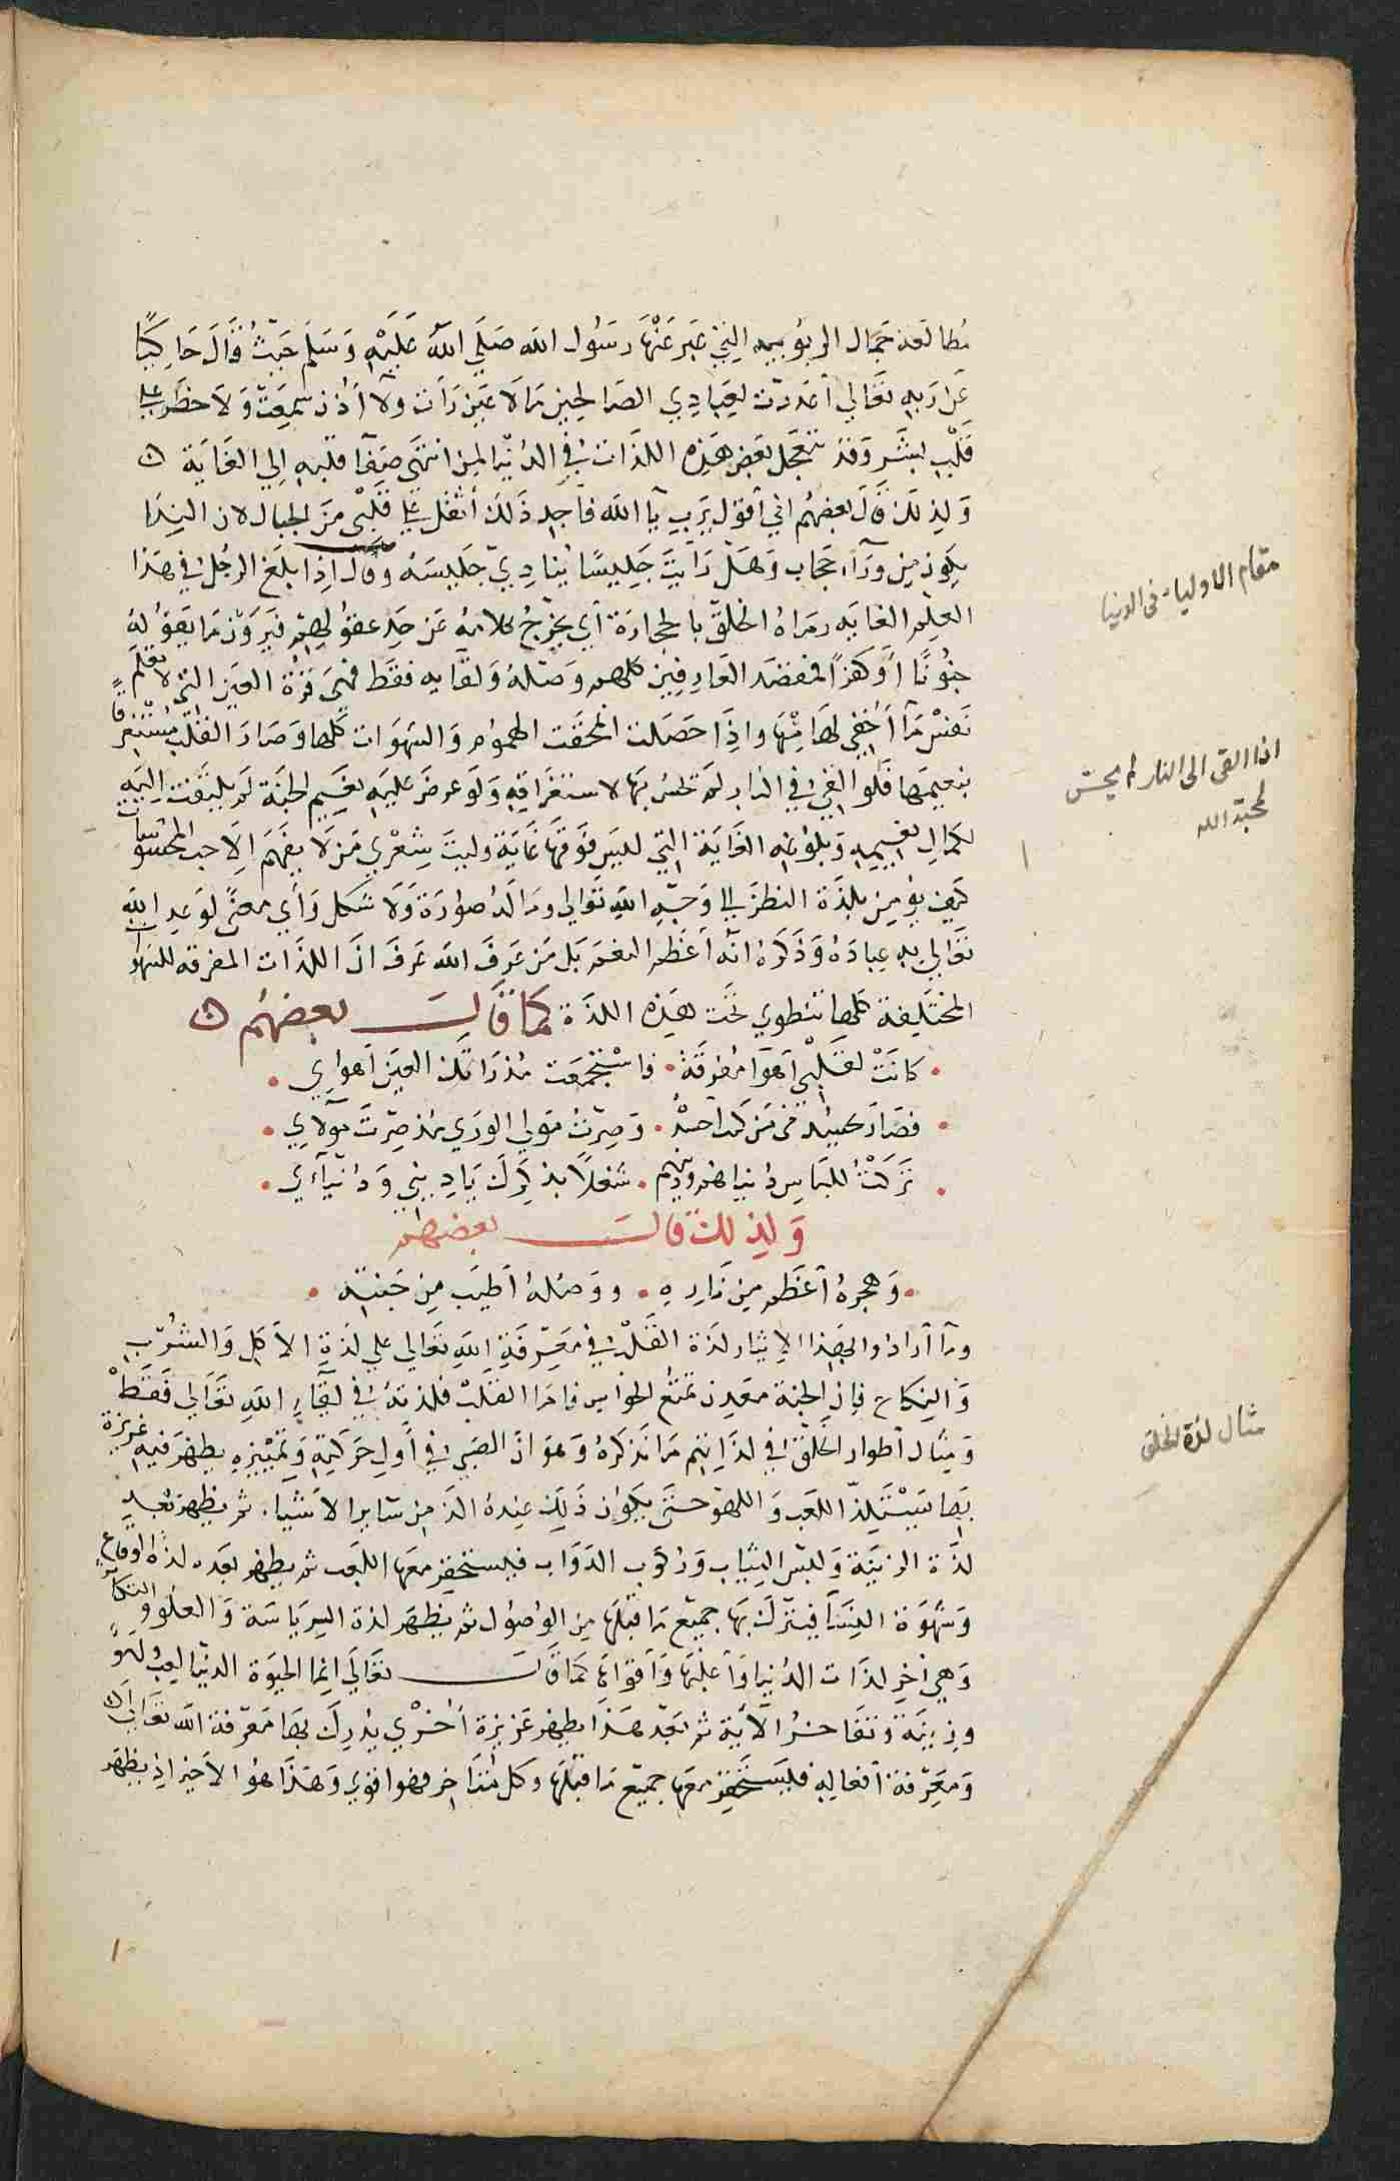 مطالعة جمال الربوبية التي عبر عنها رسول الله صَلَّي اللّهُ عَلَيْهِ وَسَلَّم حَيثُ قَالَ حَاكيًا
عَن رَبِهِ تعَالي أعَددت لعِبَادِي الصَالحين مَا لَا عَين رَأت ولا أذن سَمِعَت وَلَا خطَر علي
قَلْب بشَر وَقد تتعجل بَعض هَذِه اللذّات في الدُنيَا لمِن انتهَي صفَا قلبهِ اِلي الغَايَة ه
وَلِذلكَ قَالَ بعضهُم اني أقول يَربِ يَا الله فأجِد ذَلكَ أثقَل علي قَلبْي مِنَ الجبَال لان النِدَا
يكون مِن ورَآء حجَاب وَهَل رَايتَ جَليسًا يُنَادِي جَليسَهُ وقال اِذا بلَغ الرجُل في هذا
العِلم الغايَه رمَاهُ الخلق بالحجارَة أي يخرُجُ كلامهُ عَن حَدِ عقوُلهِم فيَروَن مَا يَقوُلهُ
جنُونًا أوَ كفرًا فمقصَد العَارِفين كلهم وَصلهُ وَلقَايه فقَط فهيَ قرّة العَين التي لا تعلم
نَفسْ مَا أخفِي لهَا مِنْهَا واذَا حَصَلت انمحَقت الهموم وَالشهوَات كلهَا وَصَارَ القَلب مُسْتغرقًا
بنعيمهَا فَلو القي في النار لم تحس بهَا لاستغرَاقهِ وَلَو عرضَ عَليهِ نعَيم الجنَة لَم يَلتفت اِليَهِ
لكمَالِ نعيمهِ وَبلوُغهِ الغَايَة التي لَيسَ فَوقهَا غَايَة وليتَ شِعْري مَن لَا يفهَم اِلَا حب المحسُوسَات
كَيف يؤمِن بلذَة النظرَ الي وَجْهِ اللهِ تعَالي وما لهُ صورَة وَلَا شكل وَأي معنيً لوَعدِ اللهِ
تعَالي بهِ عِبادَهُ وَذكَرهُ انّهُ أعَظم النعَم بَل مَن عرَفَ الله عَرفَ انَ اللذَات المفرقه للشهوات
المختلِفة كلهَا تنطوي تحَت هَذِه اللذَة كمَا قَالَ بعضهُم ه
كانَتْ لقَلْبي أهوَا مُفرقَة فاسْتجمَعت مُذ رَاتكَ العَين أهوَاي
فصَارَ يحسُدني مَن كنت احسُدُه وَصِرتُ مَولي الورَي مُذ صِرتَ مَولَاي
تَركتُ للنَاس دُنيَاهم ودينهم شغلًا بذكِرَكَ يَا دِيني وَدُنيَآئي
وَلِذلكَ قالَ بعضهم
وَهجرهُ أعَظم مِن نَارهِ ووَصلهُ أطيَب مِن جَنتهِ
ومآ أرادوا بهَذا الا ايثار لذة القَلْب في مَعرفَةِ اللهِ تعَالي علي لذةِ الأكل وَالشُربِ
وَالنِكاح فإن الجنة معَدِن تمتع الحوَاس فامَا القَلب فلذتهُ في لقَاءِ اللهِ تعَالي فَقَطْ
وَمثال أطوار الخلق في لذاتهِم مَا نذكرهُ وَهوَ انَ الصَبي في أوَلِ حَركتِهِ وَتمييزِهِ يظهرَ فيهِ غريزة
بهَا يَسْتلِذ اللعَب وَاللهو حتيَ يكون ذَلكِ عِندهُ الذ مِن سَايرا لاشيَاء ثم يظهر بعده
لذَة الزينَة وَلبسْ الثيَاب وَرُكوب الدَوَاب فيستحقر معَها اللعَب ثم يظهر بَعده لذة الوقاع
وَشهوَة النِسَآ فيترك بهَا جميع مَا قبلَها مِن الوصُول ثم يظهَر لذة الرِيَاسَة وَالعلو والتكاثر
وَهي أخِر لذات الدُنيَا وَأعلاهَا وَأقوَاهَا كمَا قَالَ تعَالَي اِنما الحيَوة الدنيَا لعِب ولهَوٌ
وزينَة وتفَاخرُ الأيَة ثم بَعَد هذَا يظهر غَريزة أخرْي يدُركَ بهَا مَعرفة الله تعَالي
وَمعَرفة أفعالهِ فيَستَحقِر معَها جميع مَا قبلَها وكل متأخِر فهوا قوَي وَهَذَا هوُ الأخير اِذ يظهَر
مقام الاولياء فى الدنيا
اذا القى الى النار لم يحسّ
لمحبة الله
مثال لذة الخلق
١٠